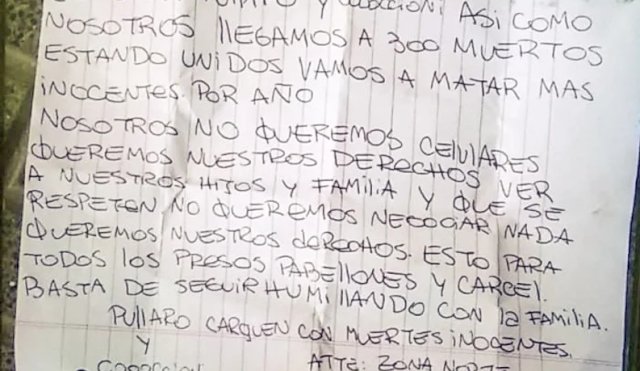 Y COCOCCIONI ASI COMO
NOSOTROS llEGAMOS A 300 MUERTOS
ESTANDO UNIDOS VAMOS A MATAR MAS
iNOCENTES POR AÑO
NOSOTROS NO QUEREMOS CELULARES
QUEREMOS NUESTROS DERECHOS VER
A NUESTROS HIJOS Y FAMILIA Y QUE SE
RESPETEN NO QUEREMOS NEGOCIAR NADA
QUEREMOS NUESTROS dERECHOS. ESTO PARA
TODOS lOS PRESOS PABELLONES Y CARCEL.
BASTA DE SEGUIR HUMillANDO CON la FAMILIA.
PUllARO CARGUEN CON MUERTES iNOCENTES.
Y
ATTE: ZONA NORTE